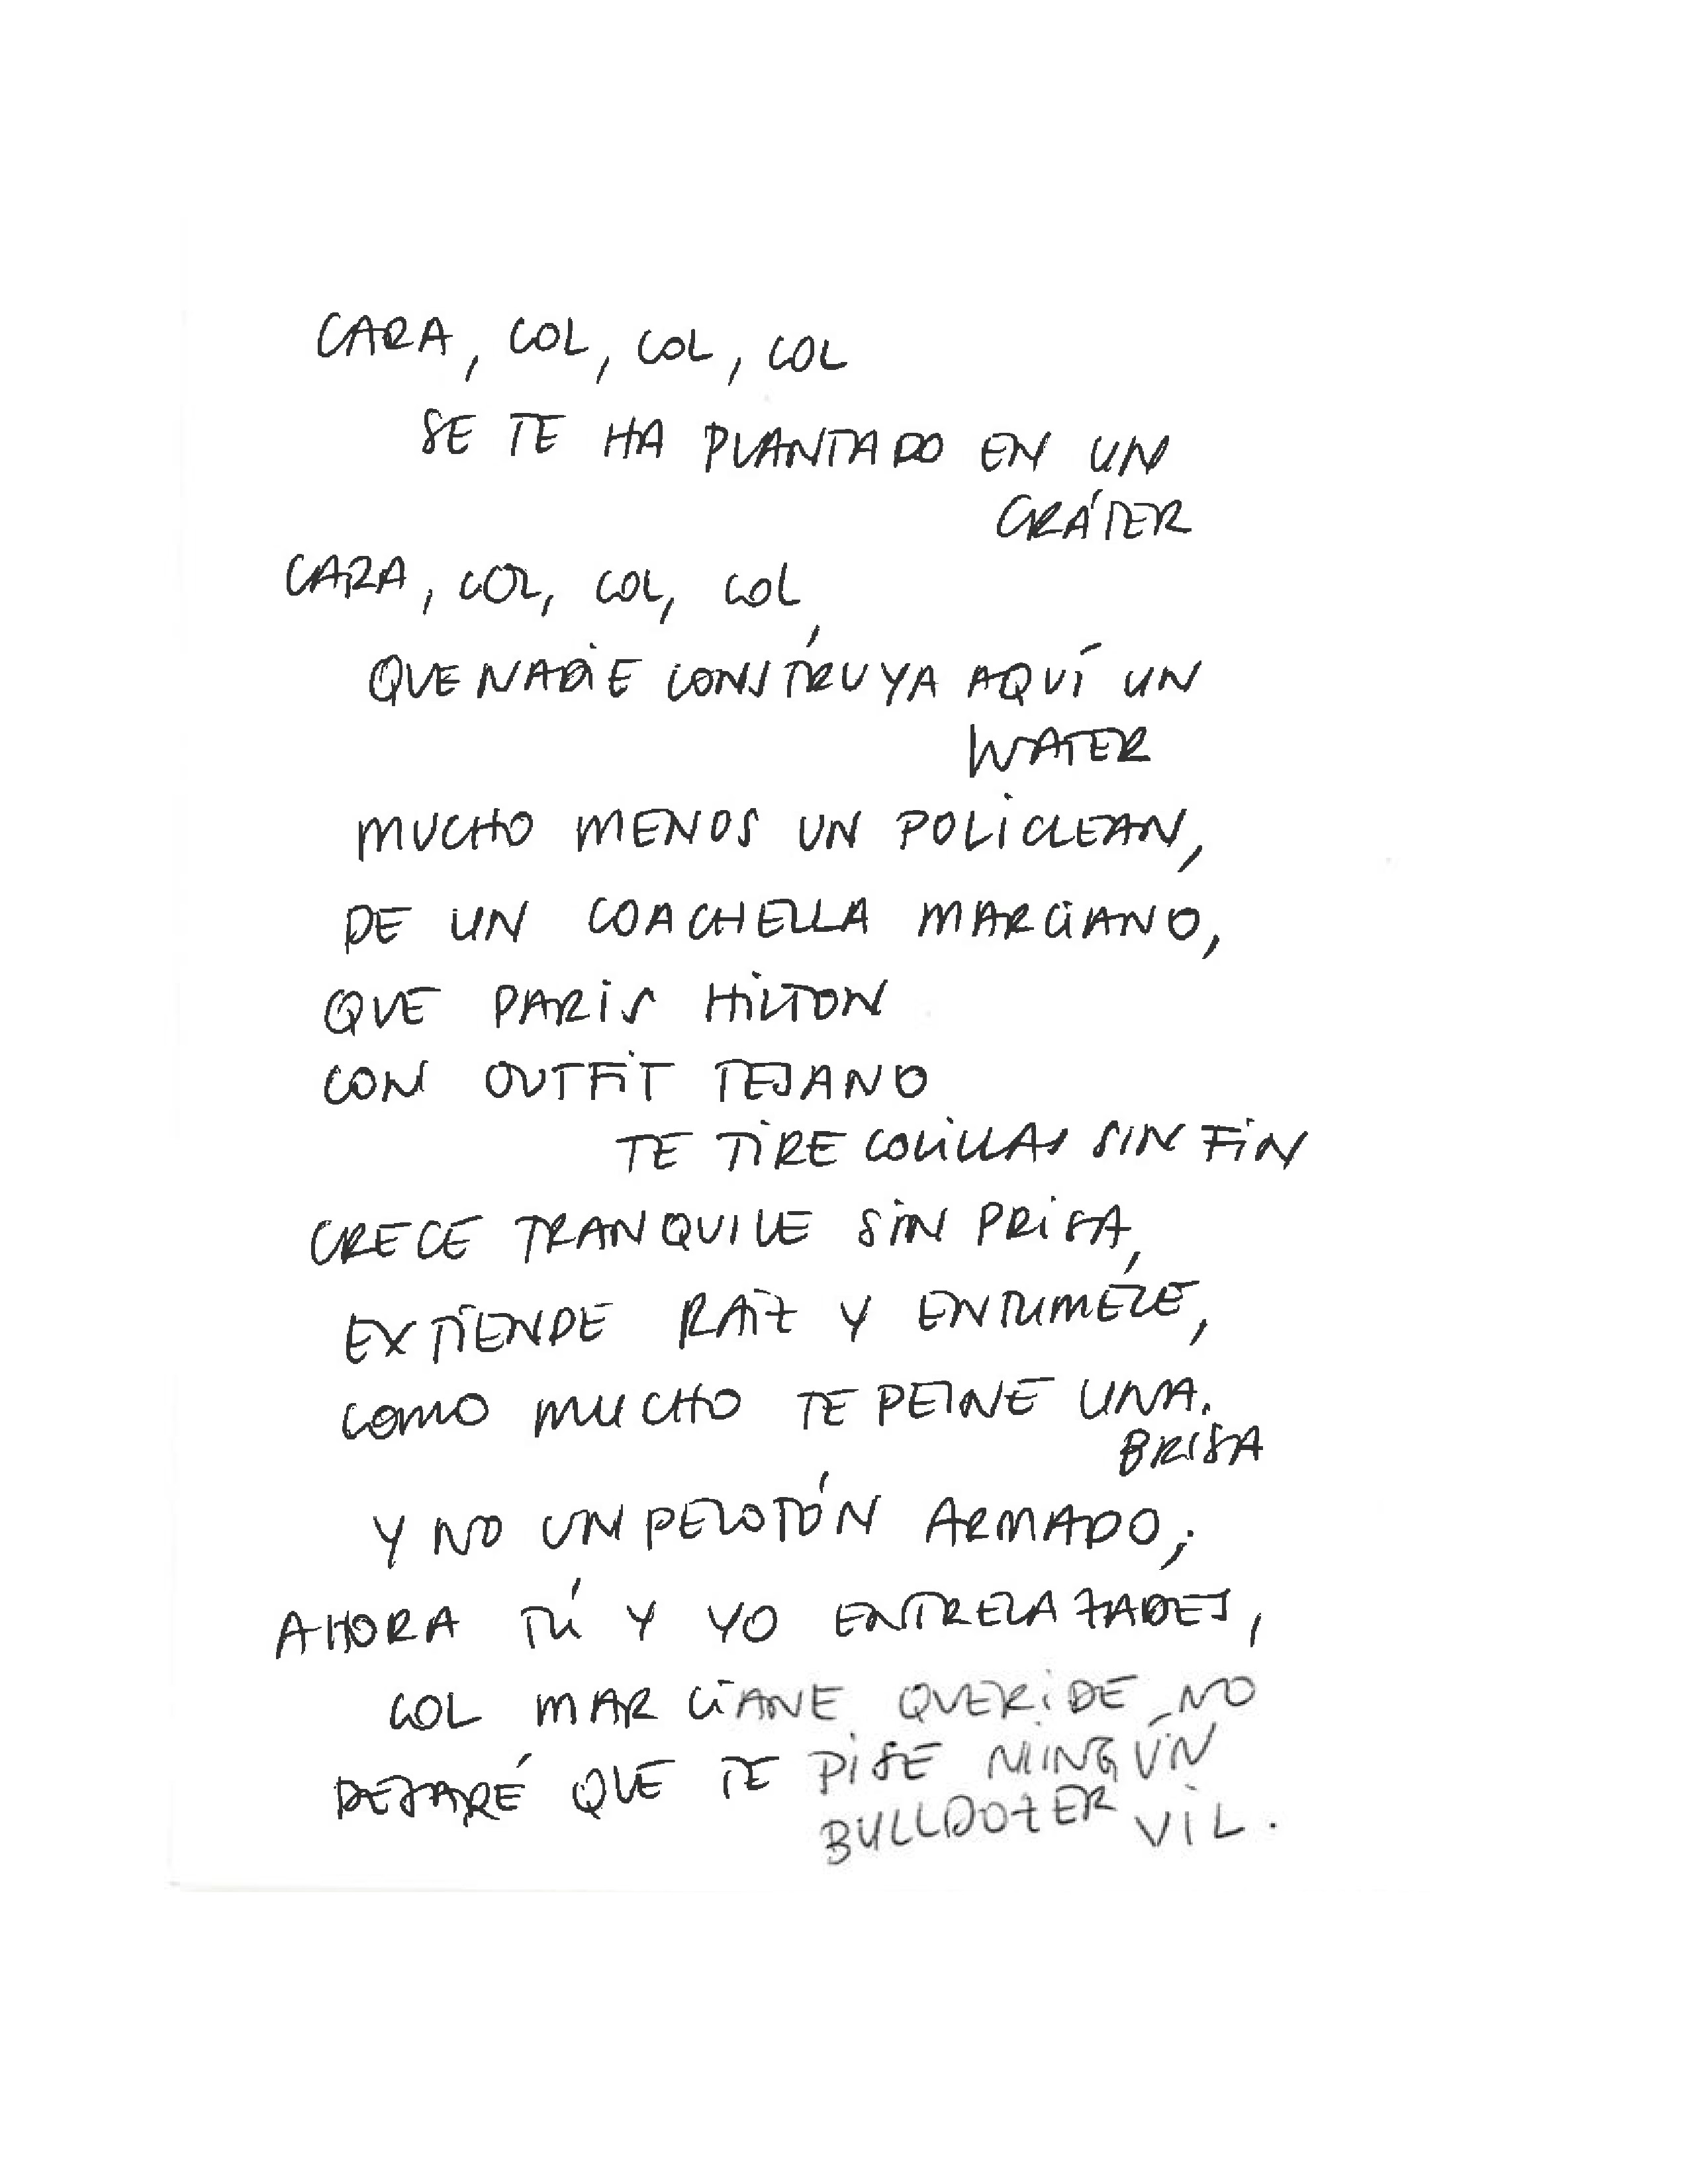 CARA, COL, COL, COL
SE TE HA PLANTADO EN UN
CRÁTER
CARA, COL, COL, COL,
QUE NADIE CONSTRUYA AQUÍ UN
WATER
MUCHO MENOS UN POLICLEAN,
DE UN COACHELLA MARCIANO,
QUE PARIS HILTON
CON OUTFIT TEJANO
TE TIRE COLILLAS SIN FIN
CRECE TRANQUILE SIN PRISA,
EXTIENDE RAIZ Y ENTUMÉCE,
COMO MUCHO TE PEINE UNA.
BRISA
Y NO UN PELOTÓN ARMADO;
AHORA TÚ Y YO ENTRELAZADES,
COL MARCIANE QUERIDE NO
DEJARÉ QUE TE PISE NINGÚN
BULLDOZER VIL.